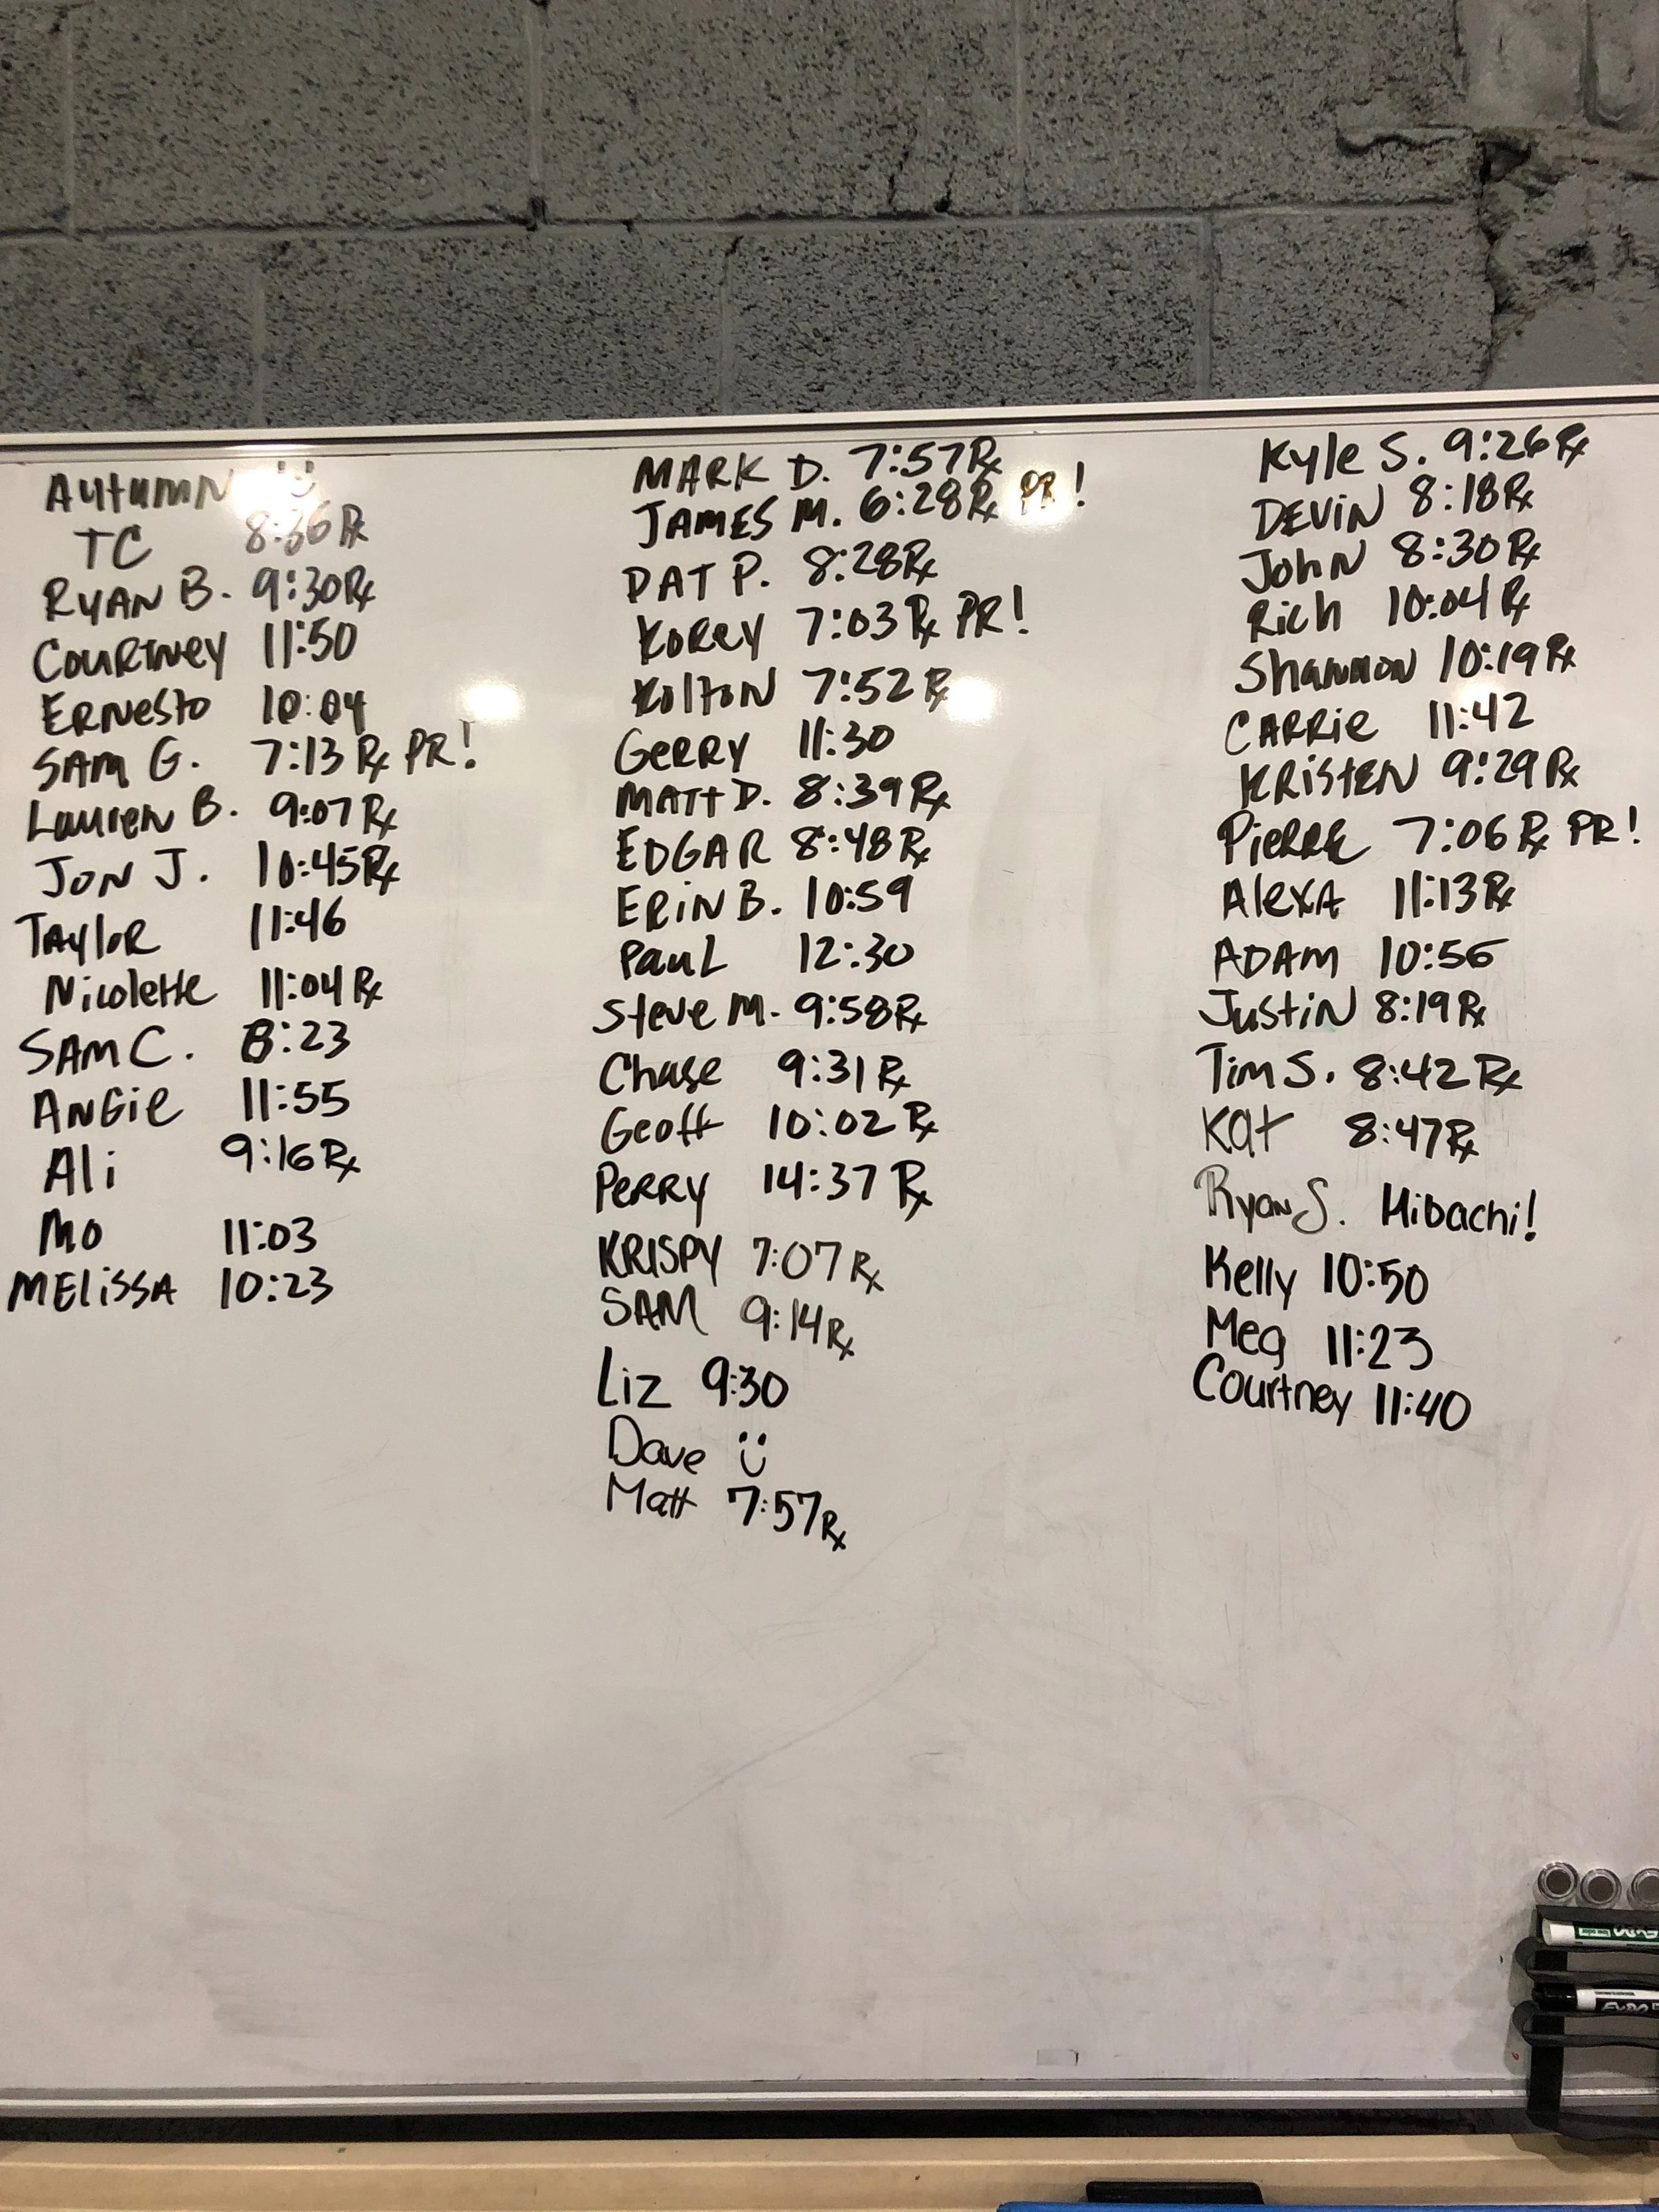 Autumn
TC 8:36 Rx
RYAN B. 9:30 Rx
COURTNEY 11:50
ERNESTO 10:04
SAM G. 7:13 Rx PR!
Lauren B. 9:07 Rx
JON J. 10:45 Rx
TAYLOR 11:46
Nicolette 11:04 Rx
SAM C. 8:23
ANGIE 11:55
Ali 9:16 Rx
MO 11:03
MELISSA 10:23
MARK D. 7:57 Rx
JAMES M. 6:28 Rx PR!
DAT P. 8:28 Rx
KOREY 7:03 Rx PR!
KOLTON 7:52 Rx
GERRY 11:30
MATT D. 8:39 Rx
EDGAR 8:48 Rx
ERIN B. 10:59
PAUL 12:30
Steve M. 9:58 Rx
Chase 9:31 Rx
Geoff 10:02 Rx
PERRY 14:37 Rx
KRISPY 7:07 Rx
SAM 9:14 Rx
Liz 9:30
Dave
Matt 7:57 Rx
Kyle S. 9:26 Rx
DEVIN 8:18 Rx
JOHN 8:30 Rx
Rich 10:04 Rx
Shannon 10:19 Rx
CARRIE 11:42
KRISTEN 9:29 Rx
PIERRE 7:06 Rx PR!
ALEXA 11:13 Rx
ADAM 10:56
JUSTIN 8:19 Rx
TIM S. 8:42 Rx
Kat 8:47 Rx
Ryan S. Hibachi!
Kelly 10:50
Meg 11:23
Courtney 11:40